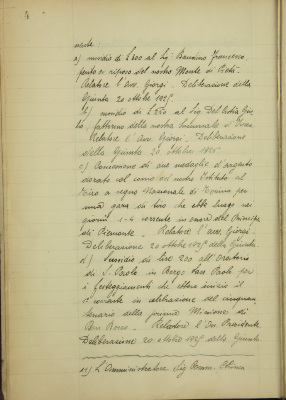 naste:
a) sussidio di L 200 al Sig. Bausano Francesco,
perito a riposo del nostro Monte di Pietà.
Relatore l'avv. Giorgi. Deliberazione della
Giunta 20 ottobre 1925.
b) sussidio di L 250 al Sig.
fattorino della nostra
Relatore l'avv. Giorgi. Deliberazione
della Giunta 20 ottobre 1925
c) Concessione di una medaglia d'argento
dorato col conio del nostro Istituto al
Tiro a segno Nazionale di Torino per
una gara di tiro che ebbe luogo nei
giorni 1-4 corrente in onore del Principe
di Piemonte. Relatore l'avv. Giorgi.
Deliberazione 20 ottobre 1925 della Giunta.
d) Sussidio di lire 200 all'Oratorio
di S. Paolo in Borgo San Paolo per
i festeggiamenti che ebbero inizio il
corrente in celebrazione del cinquan-
tenario della prima Missione di
Don Bosco. Relatore l'On. Presidente.
Deliberazione 20 ottobre 1925 della Giunta
11) L'Amministratore Sig. Comm.